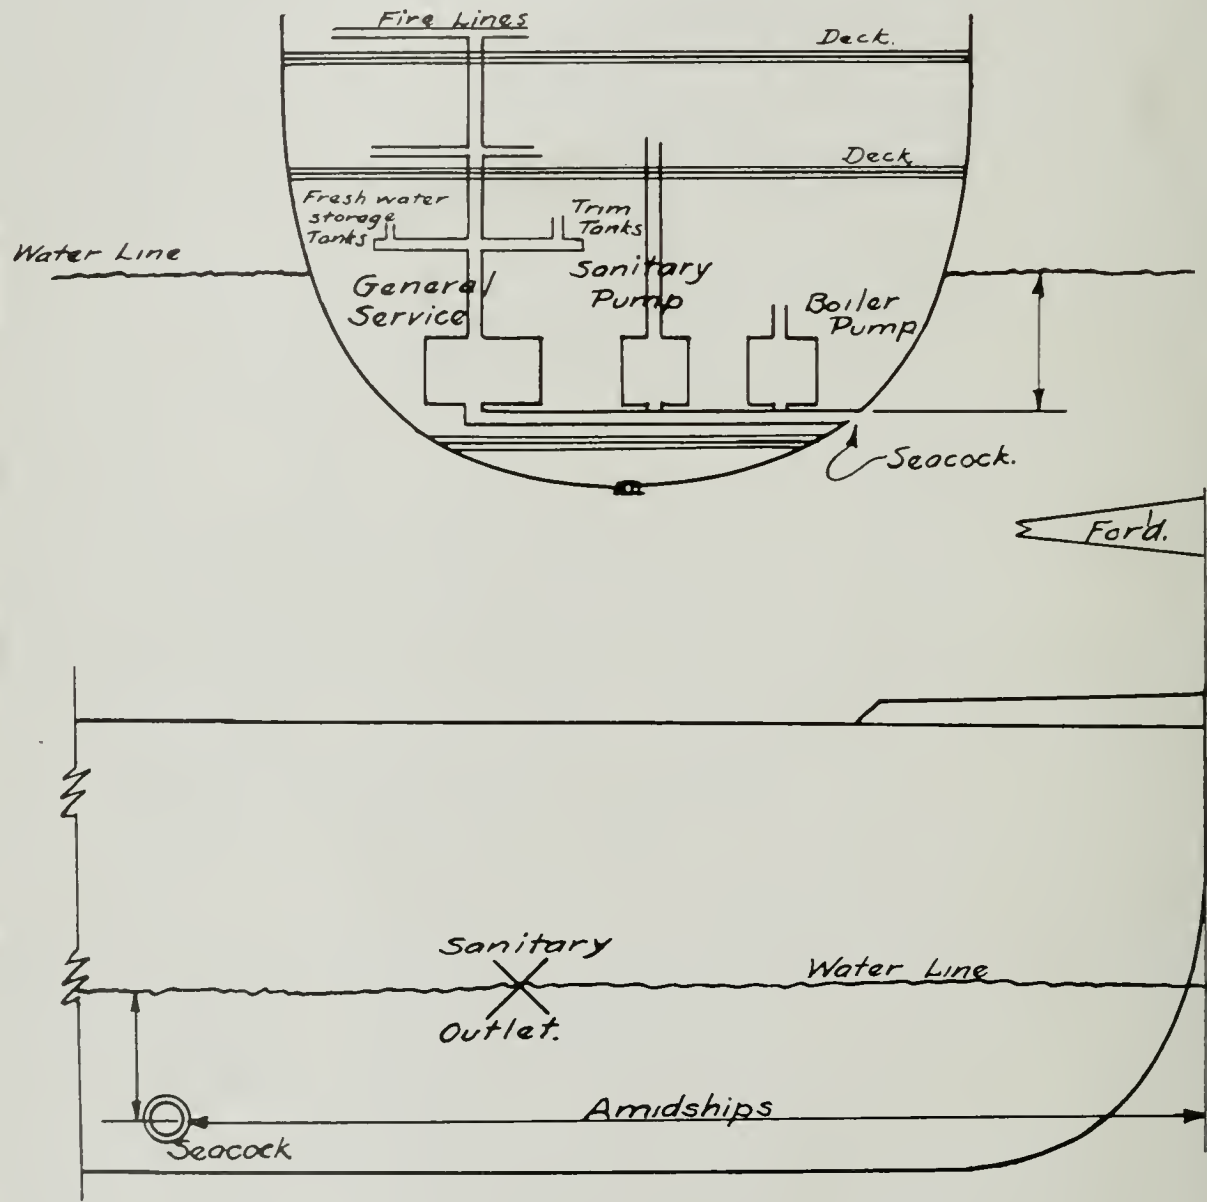 Fire Lines
Deck.
Deck
Fresh water
storage
Tanks
Trim
Tanks
Water Line
General
Service
Sanitary
Pump
Boiler
Pump
Seacock.
For'd.
Sanitary
Outlet.
Water Line
Amidships
Seacock